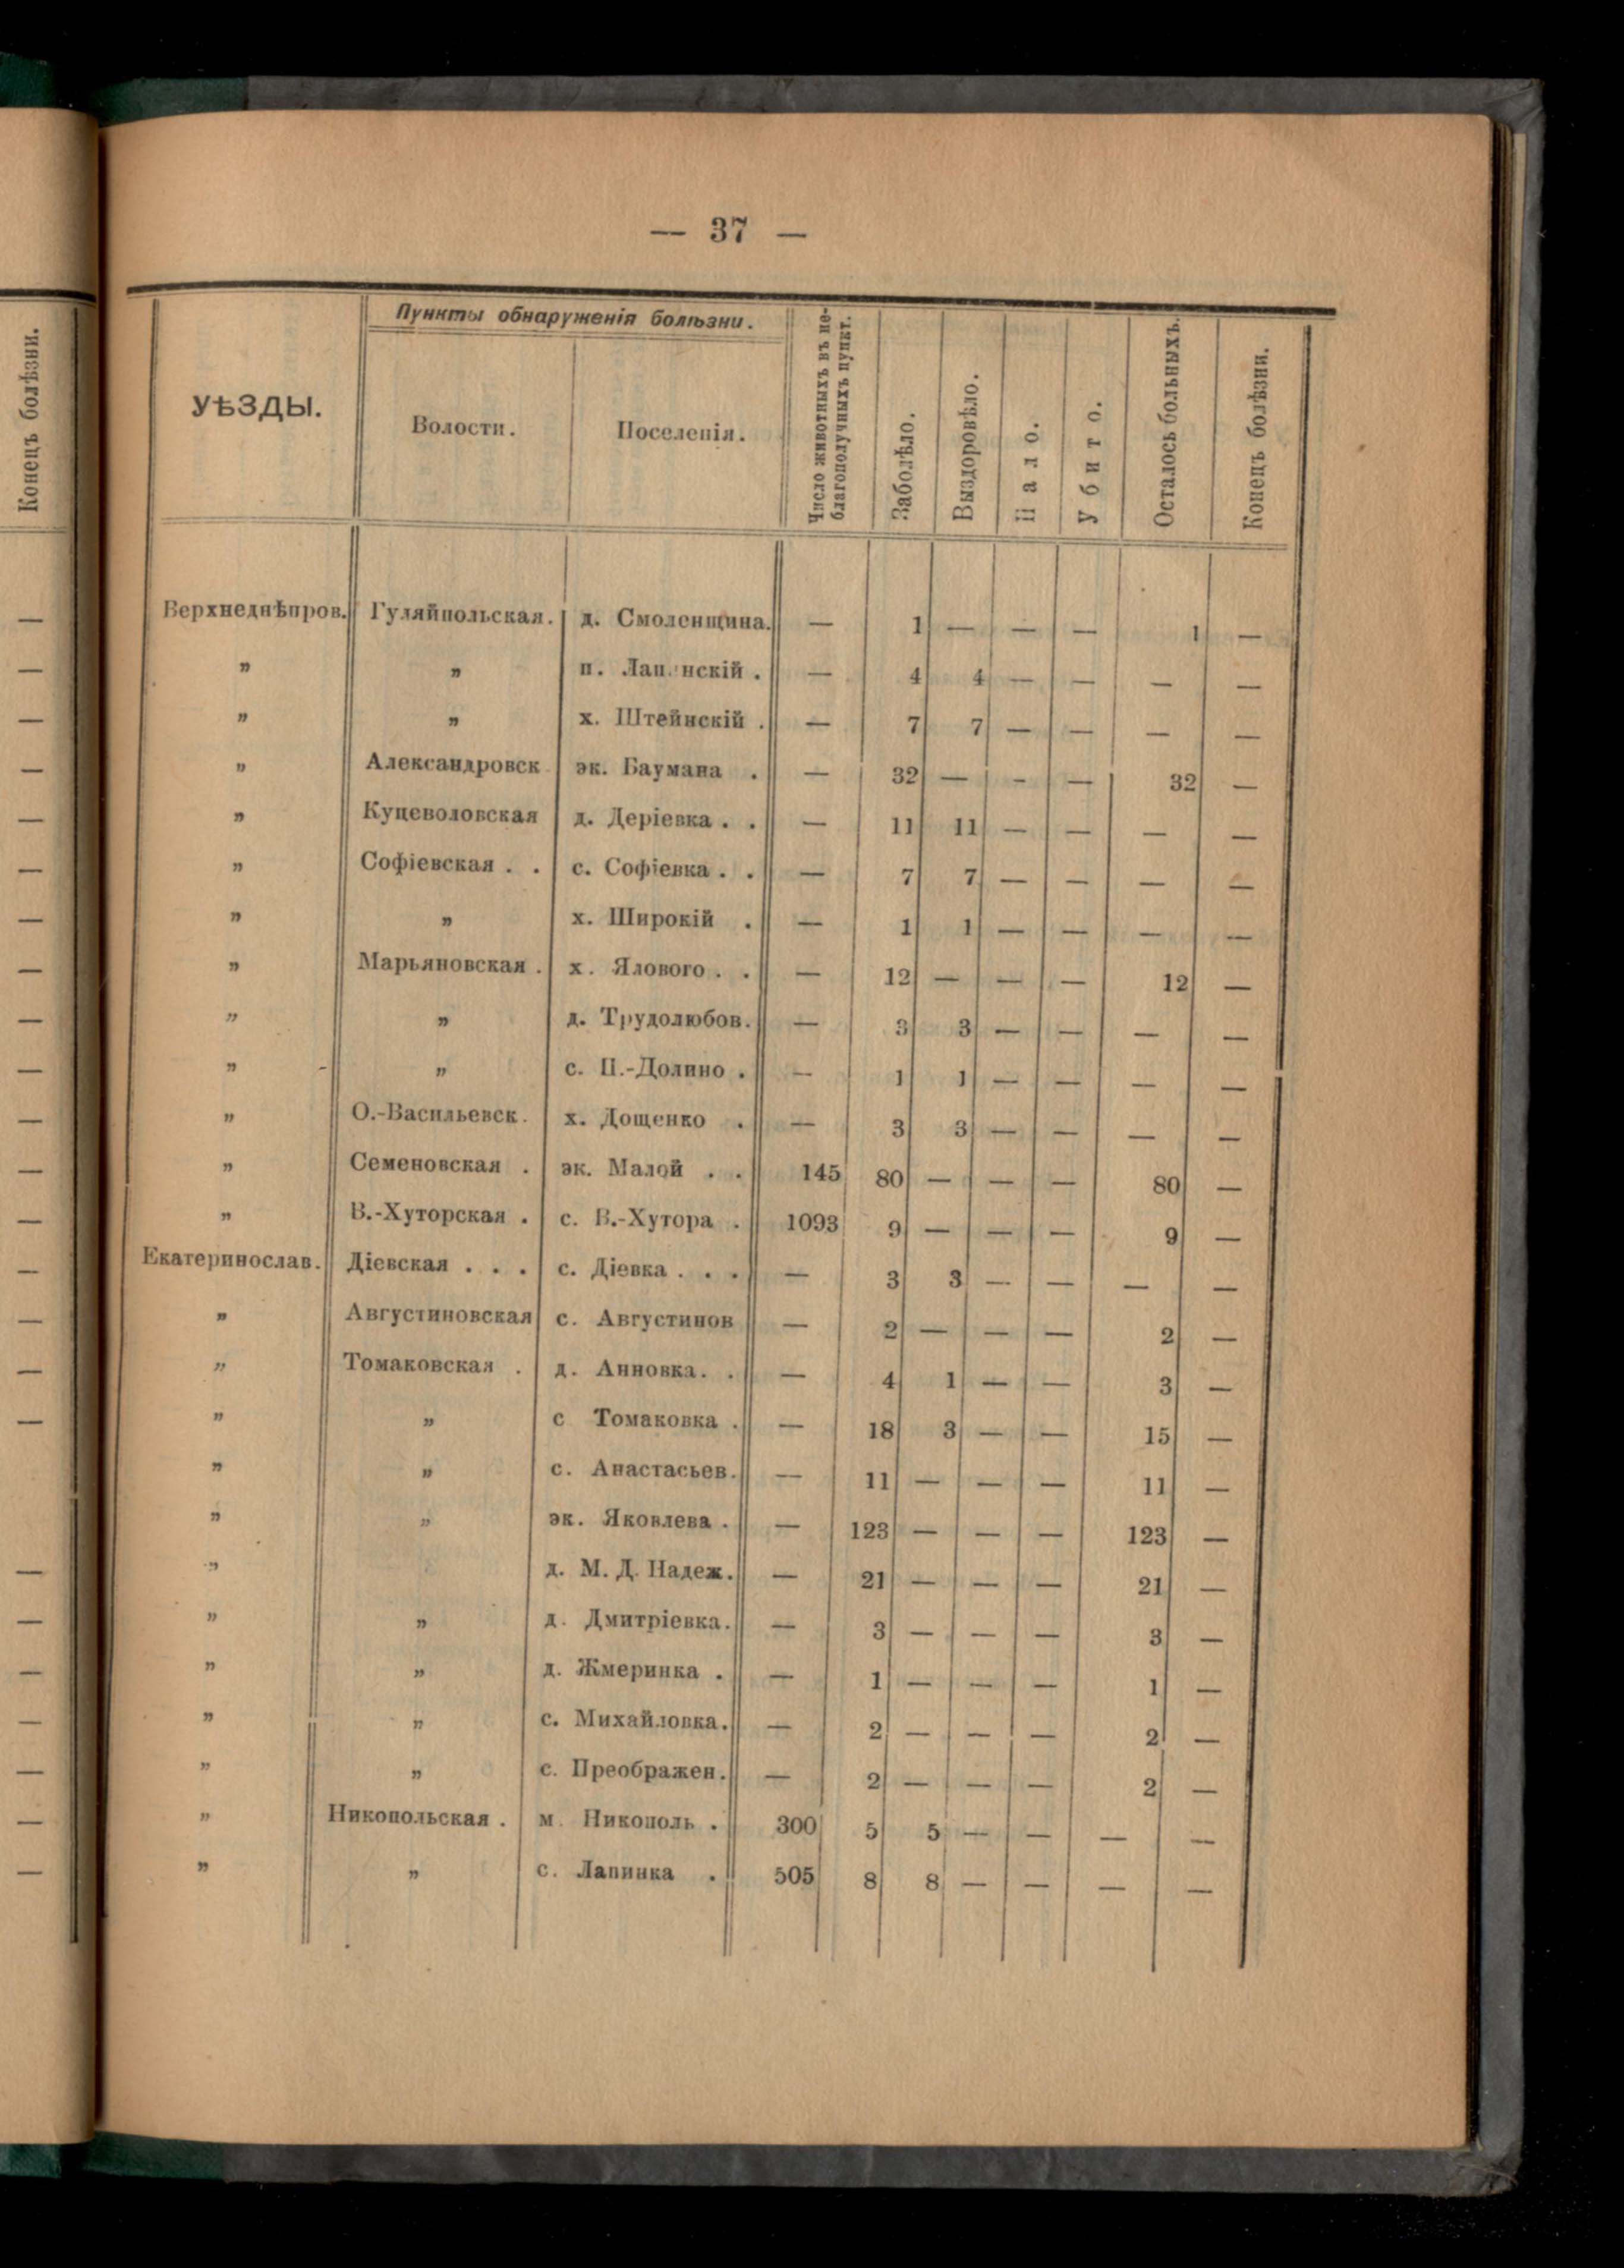 — 37 —
Конецъ болѣзни.
УѢЗДЫ.
Пункты обнаруженія болѣзни.
Волости.
Поселенія.
Число животныхъ въ не-
благополучныхъ пункт.
Заболѣло.
Выздоровѣло.
Пало.
Убито.
Осталось больныхъ.
Конецъ болѣзни.
Верхнеднѣпров. Гуляйпольская. д. Смоленщина. — 1 — — — 1 —
„ „ п. Лап нскій . — 4 4 — — — —
„ „ х. Штейнскій . — 7 7 — — — —
„ Александровск эк. Баумана . — 32 — - — 32 —
„ Куцеволовская д. Деріевка . . — 11 11 — — — —
„ Софіевская . . с. Софіевка . . — 7 7 — — — —
„ „ х. Широкій . — 1 1 — — — —
„ Марьяновская . х. Ялового . . — 12 — — — 12 —
„ „ д. Трудолюбов. — 3 3 — — — —
„ „ с. П.-Долино . — 1 1 — — — —
„ О.-Васильевск. х. Дощенко . — 3 3 — — — —
„ Семеновская . эк. Малой . . 145 80 — — — 80 —
„ В.-Хуторская . с. В.-Хутора . 1093 9 — — — 9 —
Екатеринослав. Діевская . . . с. Діевка . . . — 3 3 — — — —
„ Августиновская с. Августинов — 2 — — — 2 —
„ Томаковская . д. Анновка. . — 4 1 — — 3 —
„ „ с Томаковка . — 18 3 — — 15 —
„ „ с. Анастасьев. — 11 — — — 11 —
„ „ эк. Яковлева . — 123 — — — 123 —
„ д. М. Д. Надеж. — 21 — — — 21 —
„ „ д. Дмитріевка. — 3 — — — 3 —
„ „ д. Жмеринка . — 1 — — — 1 —
„ „ с. Михайловка. — 2 — — — 2 —
„ „ с. Преображен. — 2 — — — 2 —
„ Никопольская . м. Никополь . 300 5 5 — — — —
„ „ с. Лапинка . 505 8 8 — — — —